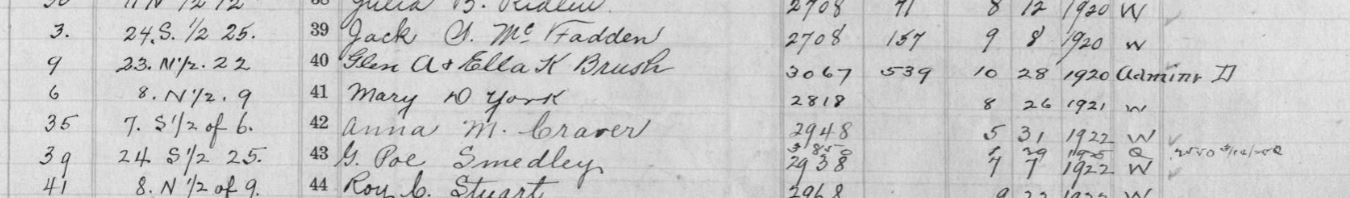 38 Julia B. 2708 71 8 12 1920 W
3. 24. S. 1/2 25. 39 Jack A. McFadden 2708 157 9 8 1920 W
9 23. N 1/2. 22 40 Glen A & Ella K Brush 3067 539 10 28 1920 Adminr D
6 8. N 1/2. 9 41 Mary D York 2818 8 26 1921 W
35 7. S 1/2 of 6. 42 Anna M. Craver 2948 5 31 1922 W
39 24 S 1/2 25. 43 G. Poe Smedley 2938 7 7 1922 W
41 8. N 1/2 of 9. 44 Roy C. Stuart 2968 9 22 W